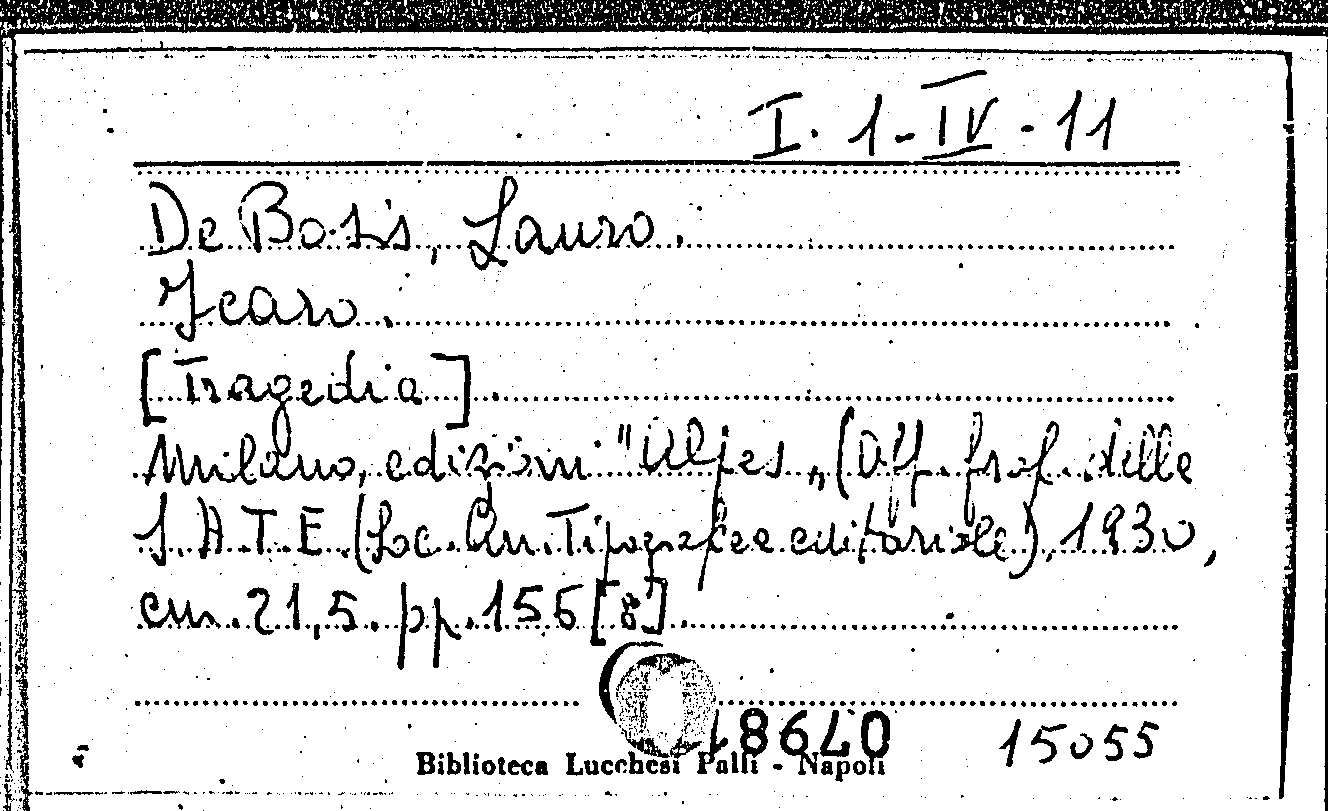 I. 1-IV-11
De Bosis, Lauro.
Icaro.
[Tragedia].
Milano, edizioni "Alpes„ (Off. Graf. delle
S.A.T.E. (Soc. An. Tipografica editoriale), 1930,
cm. 21,5. pp. 156 [8].
18640
15055
Biblioteca Lucchesi Palli - Napoli